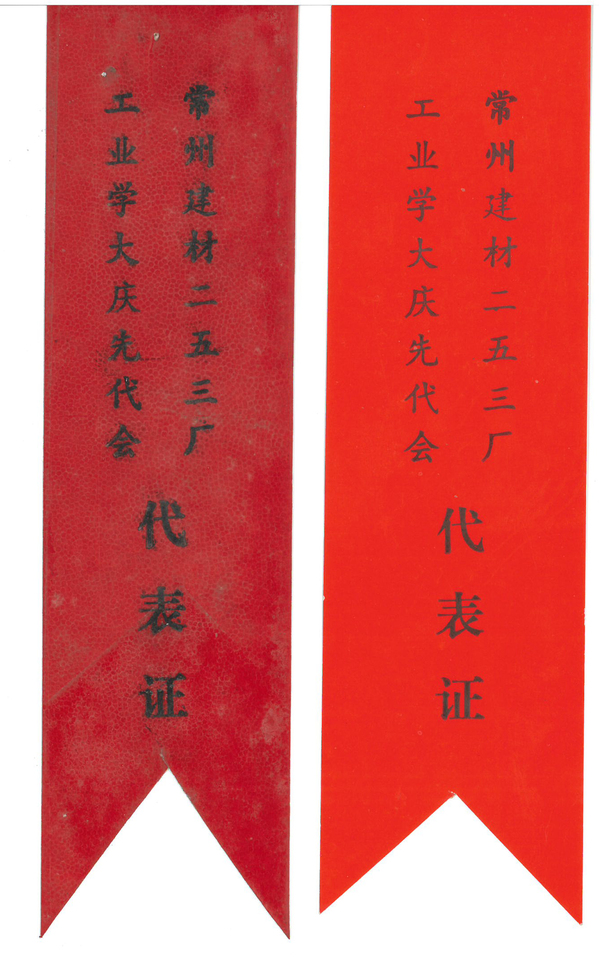 常州建材二五三厂
工业学大庆先代会
代表证
常州建材二五三厂
工业学大庆先代会
代表证